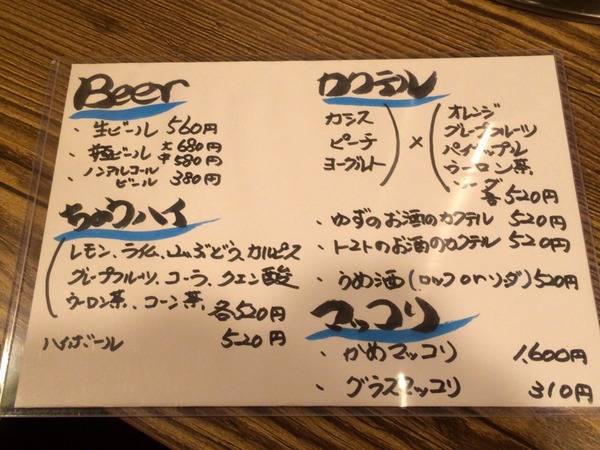 Beer
・生ビール 560円
・瓶ビール 大680円
中580円
・ノンアルコール
ビール 380円
ちゅうハイ
レモン、ライム、山ぶどう、カルピス
グレープフルーツ、コーラ、クエン酸
ウーロン茶、コーン茶、各520円
ハイボール 520円
カクテル
カシス
ピーチ
ヨーグルト
×
オレンジ
グレープフルーツ
パイナップル
ウーロン茶、
ソーダ
各520円
・ゆずのお酒のカクテル 520円
・トマトのお酒のカクテル 520円
・うめ酒(ロックorソーダ)520円
マッコリ
・かめマッコリ 1,600円
・グラスマッコリ 310円